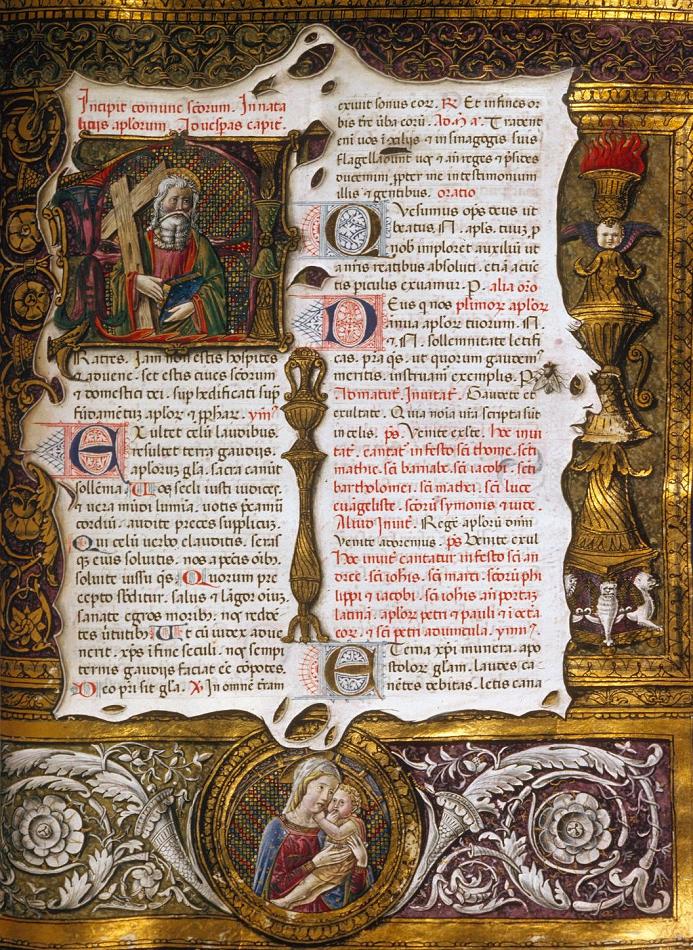 Incipit comune scorum. In nata
litijs aplorum. Ad vespas capit.
Ratres. Iam non estis hospites
et advene. set estis cives scorum
et domestici dei. sup hedificati sup
fudametuz aplor et pphar. ymn9
Exultet celu laudibus.
resultet terra gaudiis.
aplorum gla. sacra canut
sollenia. Uos secli iusti iudices.
et vera mudi lumia. votis pcamur
cordiu. audite preces supplicuz.
Qui celu verbo clauditis. seras
qz eius soluitis. nos a pctis oib.
soluite iussu qs. Quorum pre
cepto sbditur. salus et lagor oiuz.
sanate egros moribz. nos redde
tes ututibz. Ut cu iudex adve
nerit. xps i fine seculi. nos sempi
terni gaudij faciat ee copotes.
Deo pri sit gla. V. In omne tram
exiuit sonus eor. R. Et in fines or
bis tre uba coru. Ad M. a. Tradent
eni vos i xilijs et in sinagogis suis
flagellabunt vos et an reges et psides
ducemini. ppter me in testimonium
illis et gentibus. oratio
Quesumus ops deus ut
beatus. N. apls. tuuz. p
nob imploret auxiliu ut
a nris reatibus absoluti. eti a cuc
tis piculis exuamur. P. alia oro
Deus q nos plimor aplor
N. et N. sollemnitate letifi
cas. pra qs. ut quorum gaudem9
meritis. instruam exemplis. P
Ad matut. Invitat. Gaudete et
exultate. Quia noia vra scripta sut
in celis. ps. Venite exlte. Hec invi
tat. cantat in festo sci thome. sci
mathie. sci barnabe. sci iacobi. sci
bartholomei. sci mathei. sci luce
euageliste. scoru symonis et iude.
Aliud Inuit. Rege aploru dnm
Venite adoremus. ps Venite exul
Hec inuit cantatur in festo sci an
dree. sci iohis. sci marci. scoru phi
lippi et iacobi. sci iohis an portaz
latina. aplor petri et pauli et i octa
eor. et sci petri advincula. ymn9
Eterna xpi munera. apo
stolor glam. laudes ca
netes debitas. letis cana